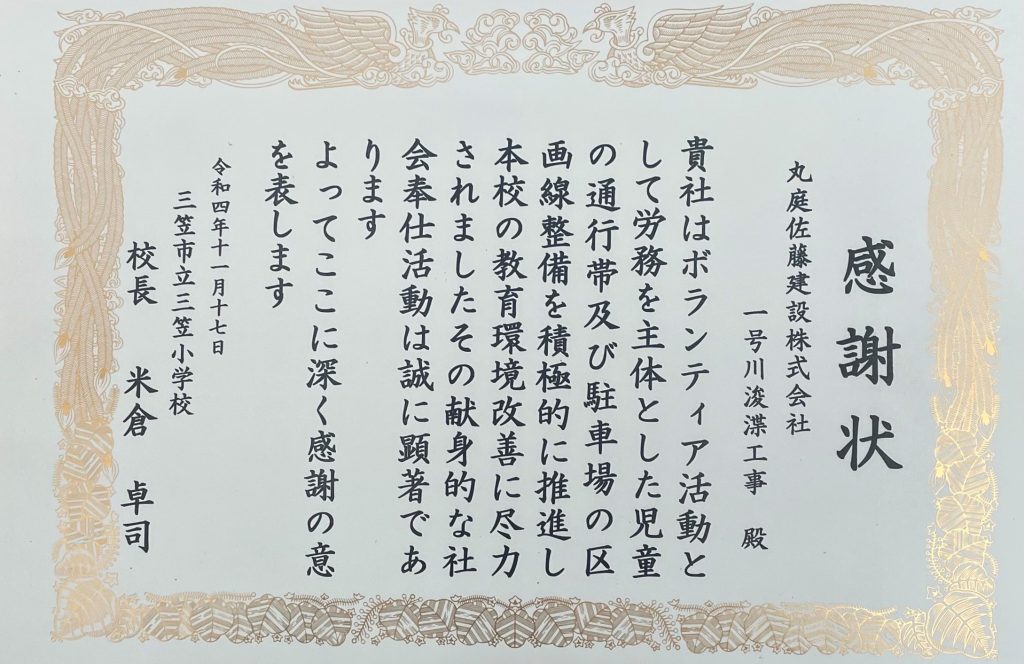 感謝状
丸庭佐藤建設株式会社
一号川浚渫工事　殿
貴社はボランティア活動と
して労務を主体とした児童
の通行帯及び駐車場の区
画線整備を積極的に推進し
本校の教育環境改善に尽力
されましたその献身的な社
会奉仕活動は誠に顕著であ
ります
よってここに深く感謝の意
を表します
令和四年十一月十七日
三笠市立三笠小学校
校長　米倉　卓司